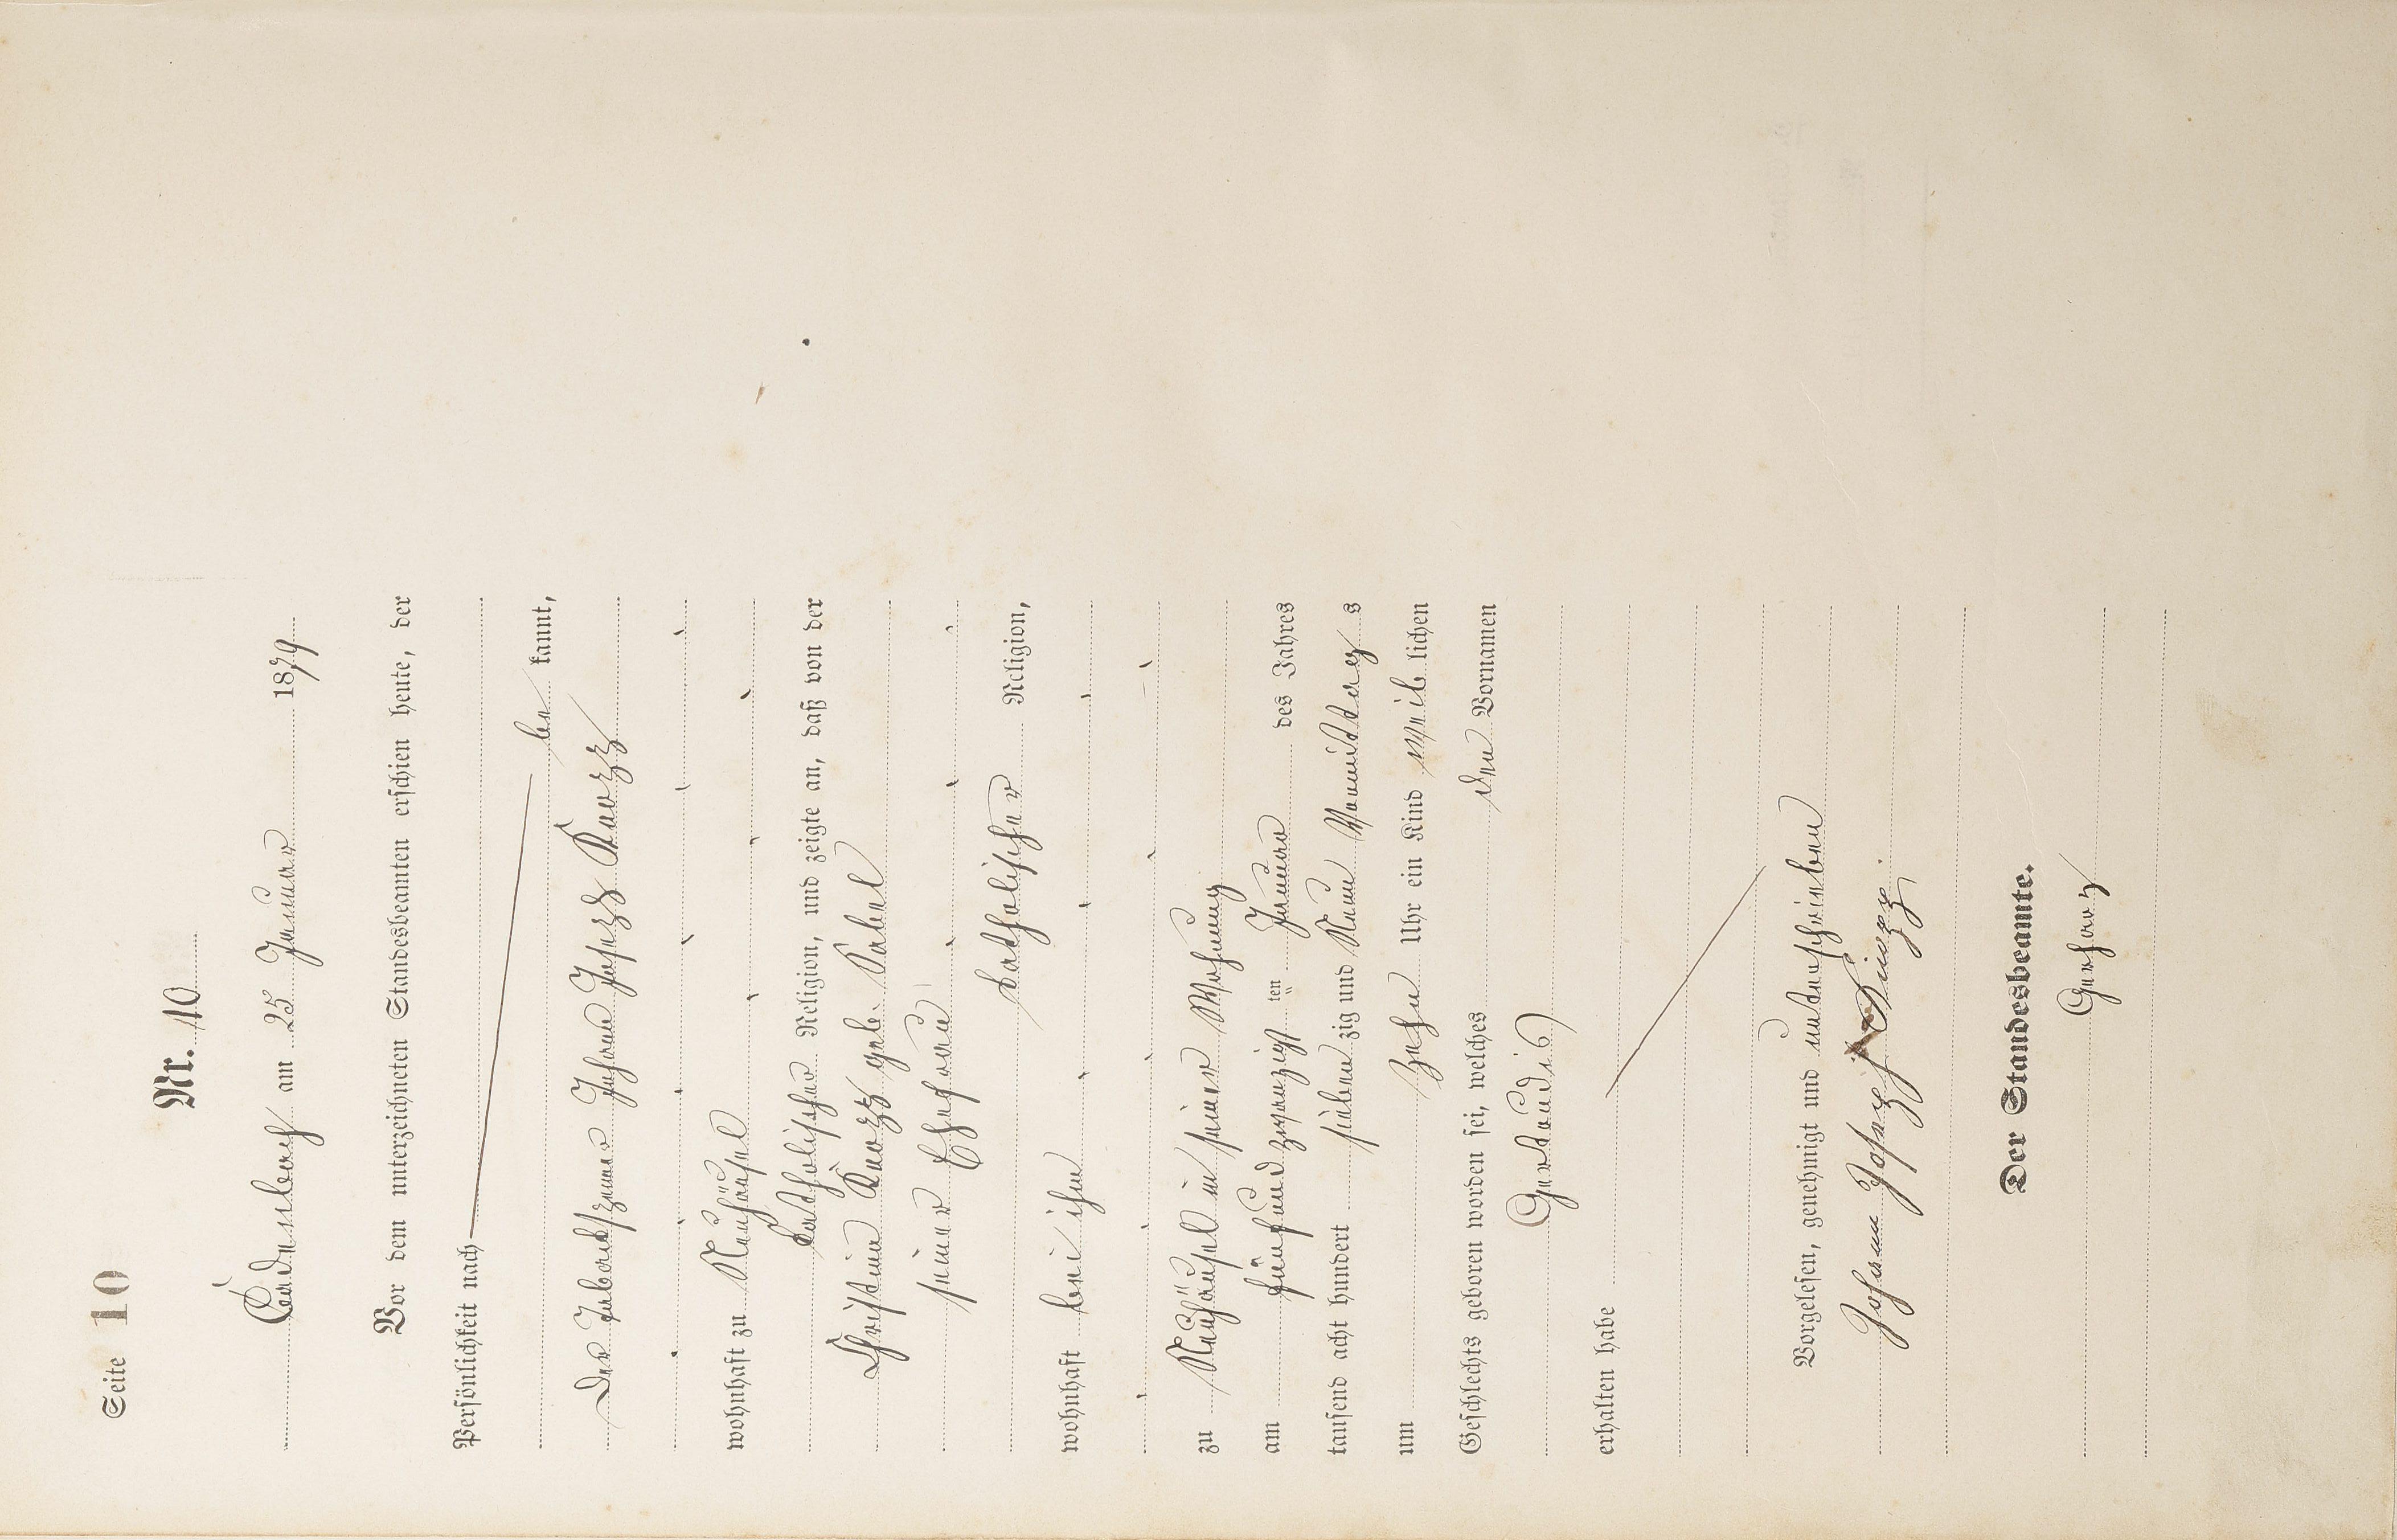 Seite 10
Nr. 10
Cadenbach am 25 Januar 1879
Vor dem unterzeichneten Standesbeamten erschien heute, der
Persönlichkeit nach
be kannt,
Der Johann Joseph
wohnhaft zu Neuhäusel
katholischer Religion, und zeigte an, daß von der
Christina geb. Sabel
seiner Ehefrau
katholischer Religion,
wohnhaft bei ihm
zu Neuhäusel in seiner Wohnung
am fünfundzwanzigsten Januar des Jahres
tausend acht hundert sieben zig und Neun Vormittags
um Zehn Uhr ein Kind weib lichen
Geschlechts geboren worden sei, welches den Vornamen
Gertrudis
erhalten habe
Vorgelesen, genehmigt und unterschrieben
Johann Joseph
Der Standesbeamte.
Gerharz